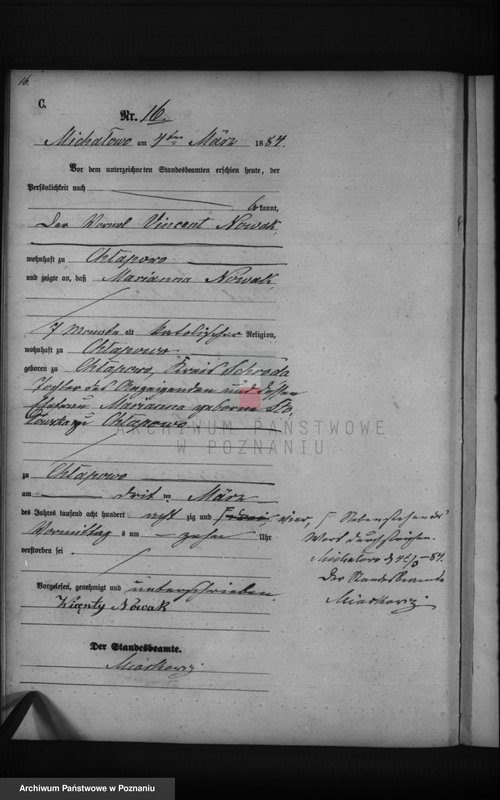 16.
C.
Nr. 16.
Michałowo am 4ten März 1884.
Vor dem unterzeichneten Standesbeamten erschien heute, der
Persönlichkeit nach
bekannt,
Der Vincent Nowak,
wohnhaft zu Chłapowo
und zeigte an, daß Marianna Nowak,
7 Monate alt katolischer Religion,
wohnhaft zu Chłapowo
geboren zu Chłapowo, Kreis Schroda
Tochter des Anzeigenden und dessen
Ehefrau Marianna geborne
zu Chłapowo
ARCHIWUM PAŃSTWOWE
W POZNANIU
zu Chłapowo
am drit ten März
des Jahres tausend acht hundert acht zig und drei vier
Vormittag s um zehn Uhr
verstorben sei
Nebenstehendes
Wort durchstrichen.
Michałowo d. 4/3 84.
Der Standesbeamte
Miaskowski
Vorgelesen, genehmigt und unterschrieben
Wincenty Nowak
Der Standesbeamte.
Miaskowski
Archiwum Państwowe w Poznaniu